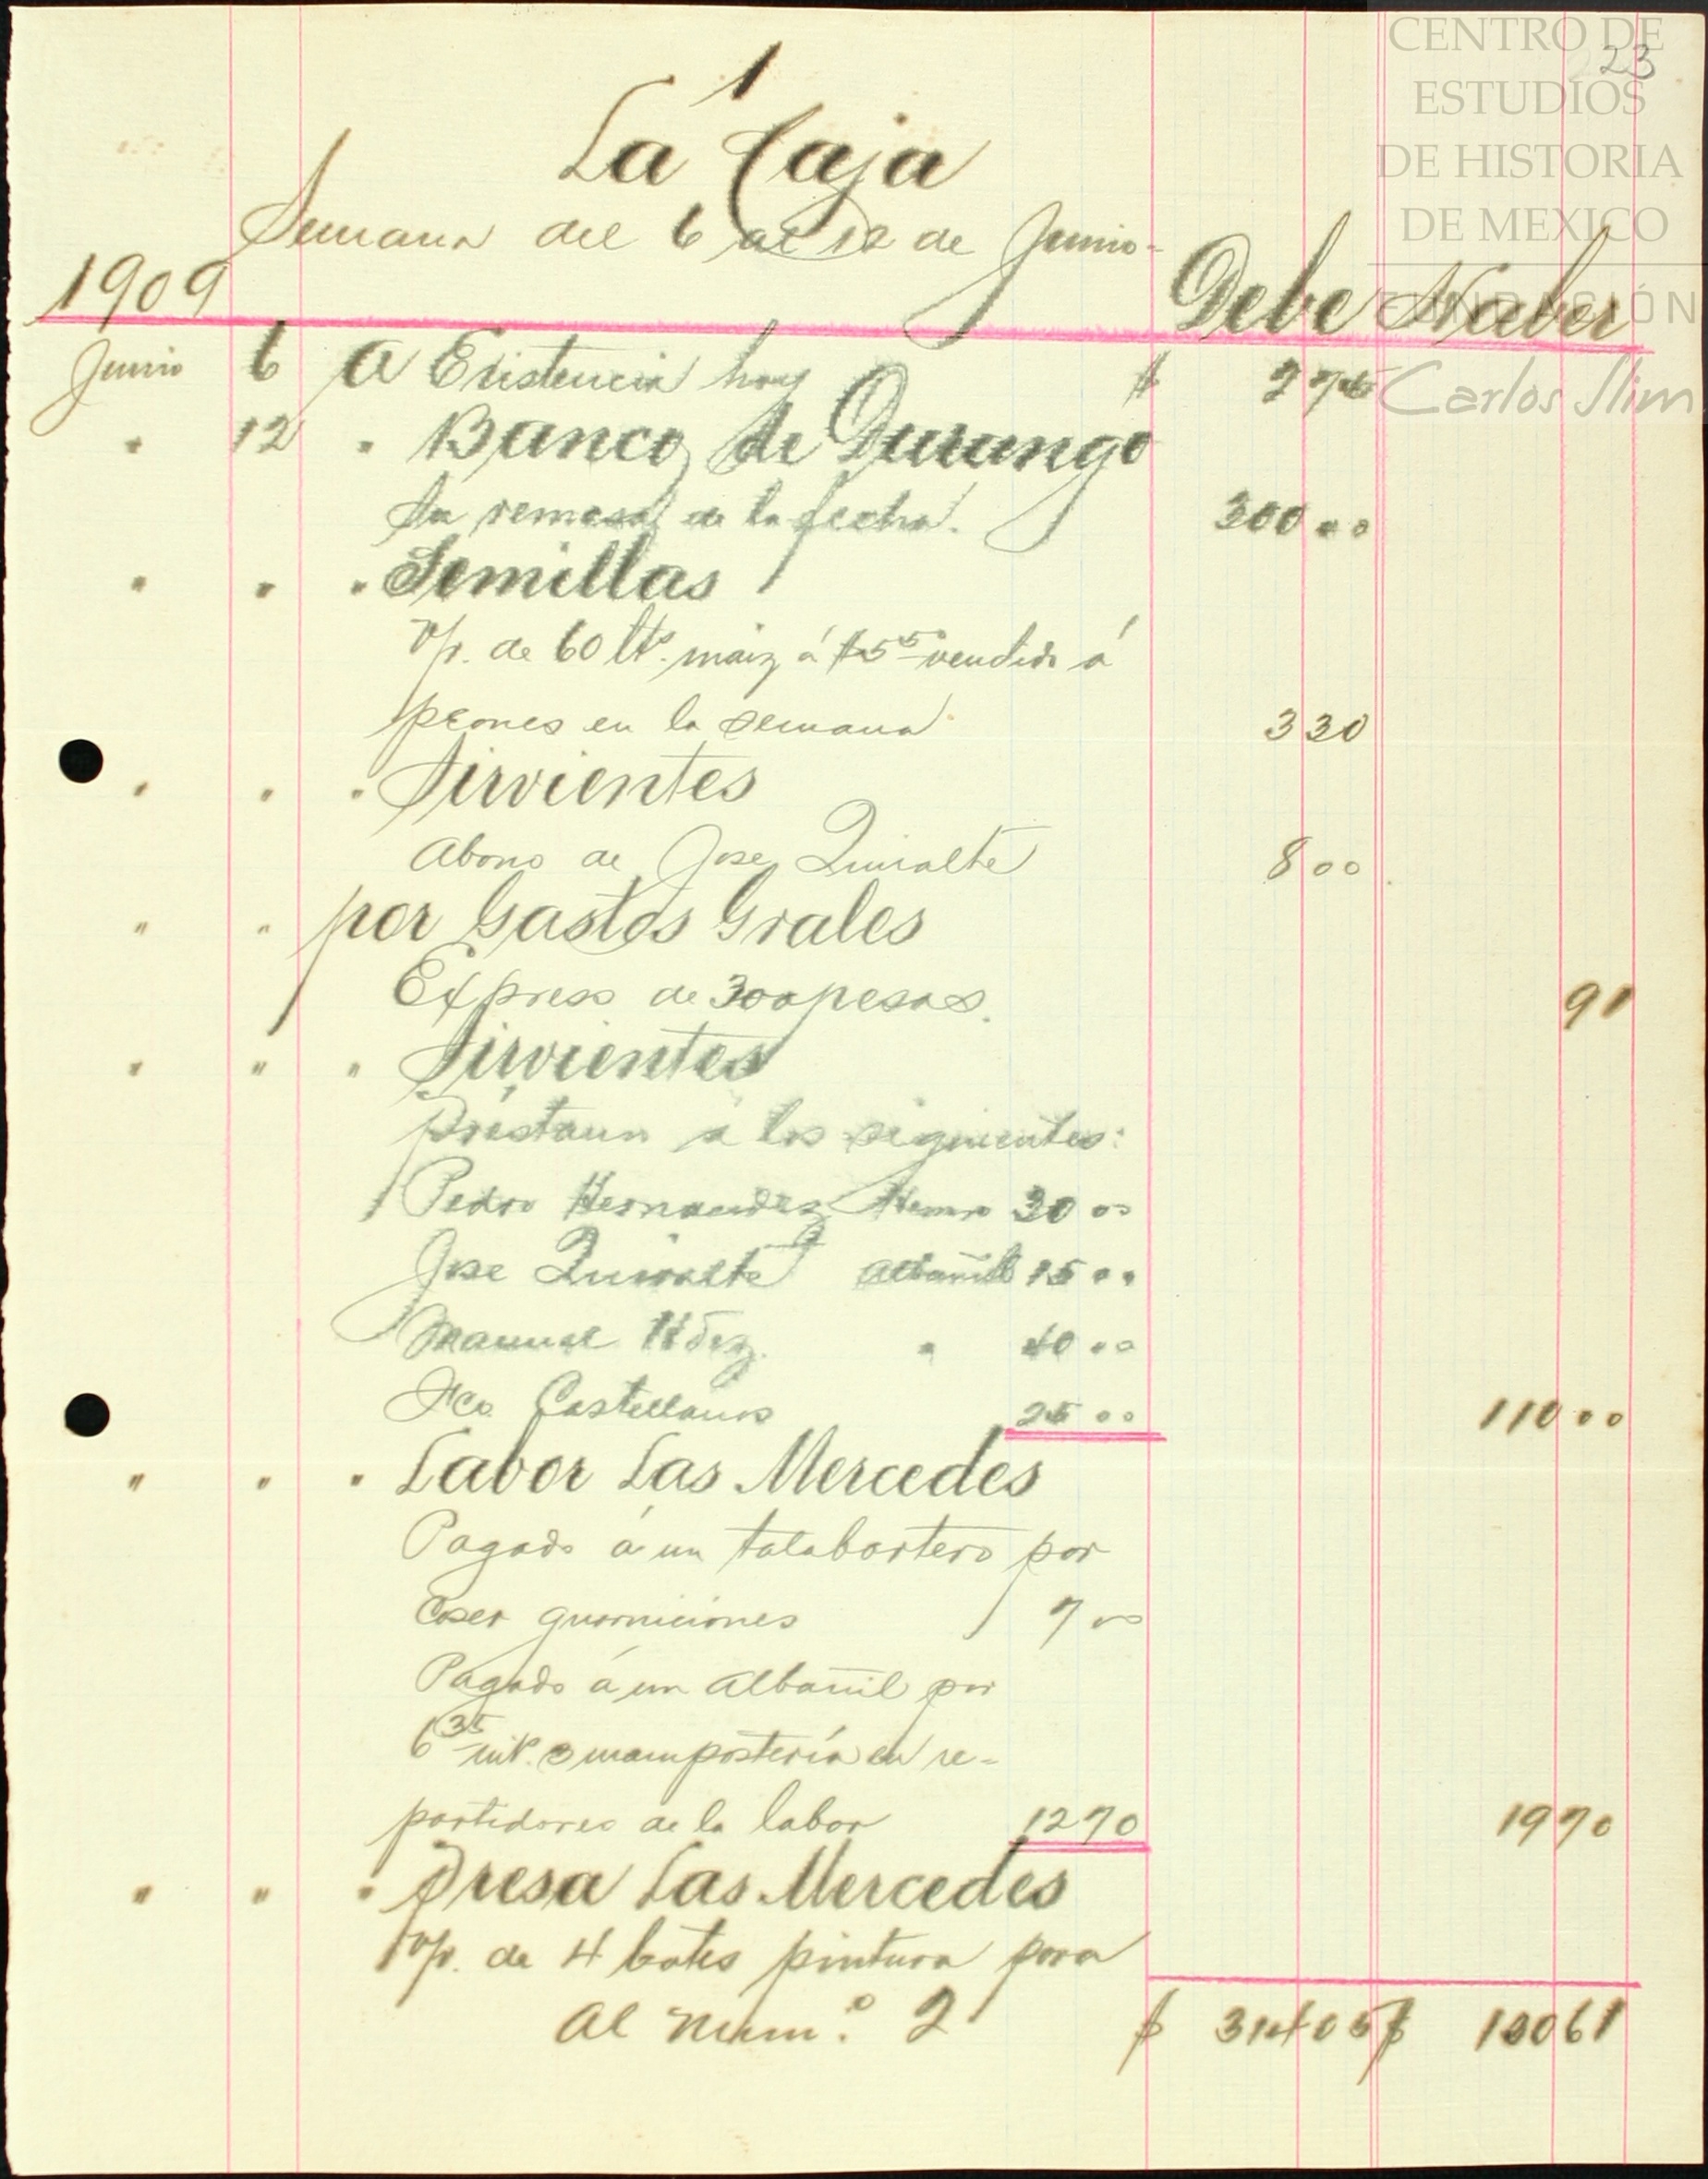 CENTRO DE
ESTUDIOS
DE HISTORIA
DE MEXICO
FUNDACIÓN
Carlos Slim
23
1
La Caja
Semana del 6 al 12 de Junio-
1909 Debe Haber
Junio 6 A Existencia hoy $ 2 75
" 12 " Banco de Durango
Su remesa de la fecha. 300 00
" " " Semillas
de 60 lts. maiz á vendido á
peones en la semana 3 30
" " " Sirvientes
Abono de Jose Quiralte 8 00
" " por Gastos Grales
Express de 300 pesos. 91
" " " Sirvientes
Préstamo a los siguientes:
Pedro Hernandez 30 00
Jose Quiralte Albañil 15 00
Manuel Hdez. " 40 00
Fco. Castellanos 25 00 110 00
" " " Labor Las Mercedes
Pagado á un talabartero por
Coser guarniciones 7 00
Pagado á un albañil por
6 35 mt. mamposteria en re-
partidores de la labor 12 70 19 70
" " " Presa Las Mercedes
de 4 botes pintura para
Al Num.º 2 $ 314 05 $ 130 61